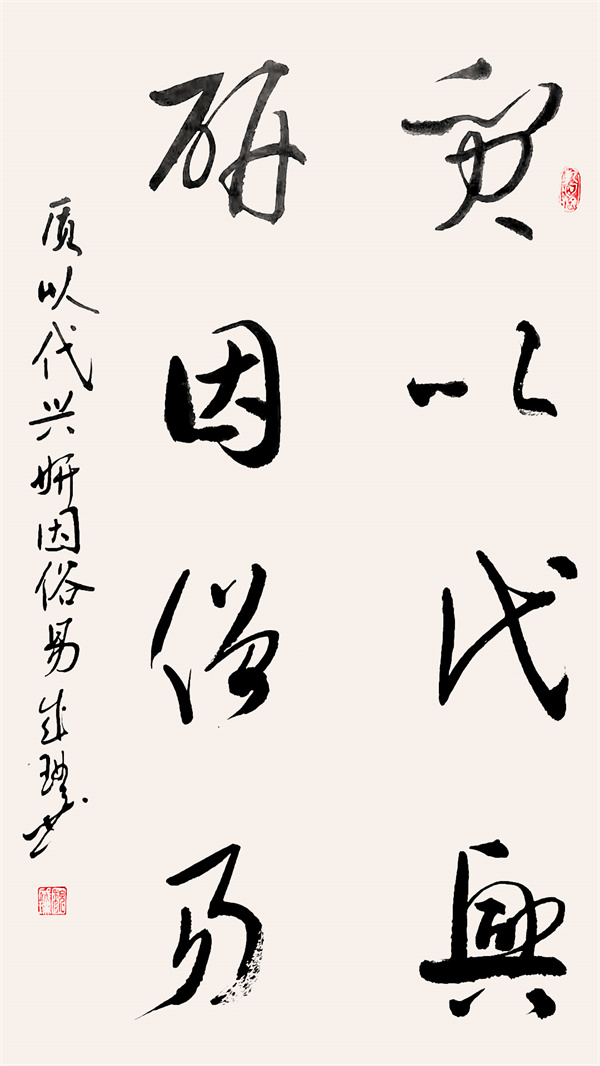 質以代興
妍因俗易
质以代兴妍因俗易